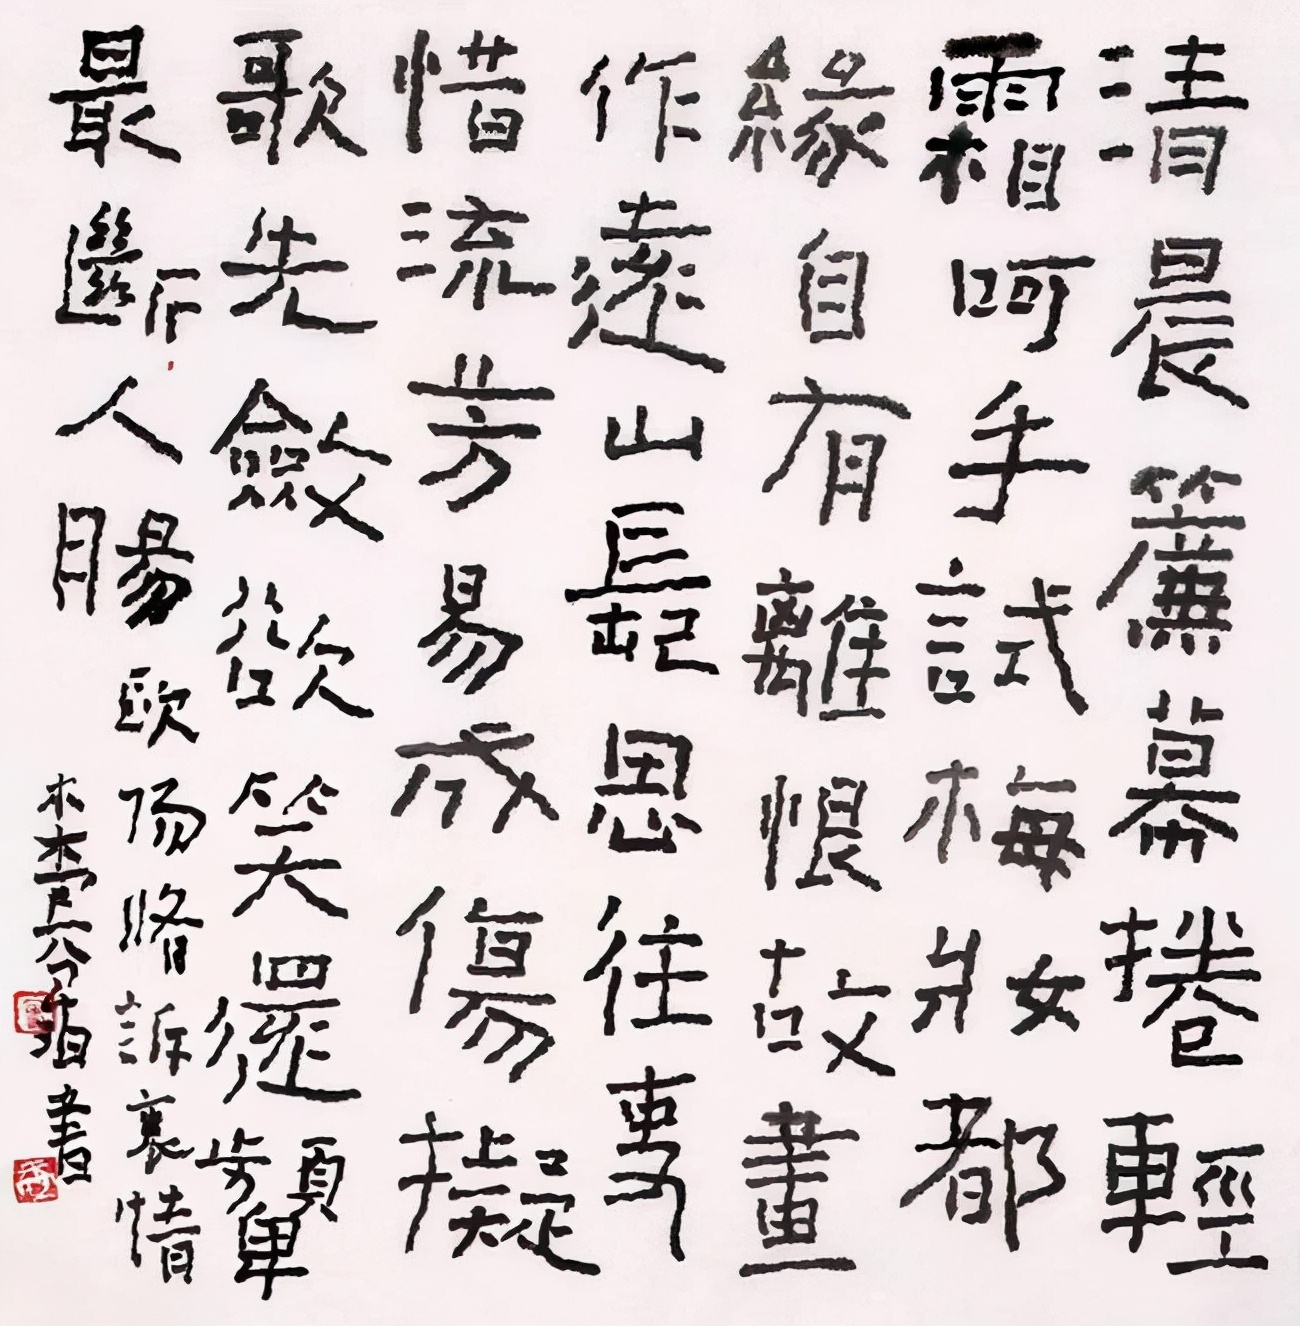 清晨簾幕捲輕
霜呵手試梅妝都
緣自有離恨故畫
作遠山長思往事
惜流芳易成傷擬
歌先斂欲笑還顰
最斷人腸歐陽脩訴衷情
書